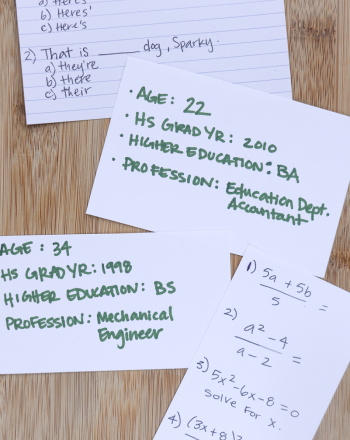 a) Here's
b) Heres'
c) Here's
2) That is ______ dog, Sparky.
a) they're
b) there
c) their
• AGE: 22
• HS GRAD YR: 2010
• HIGHER EDUCATION: BA
• PROFESSION: Education Dept.
Accountant
AGE: 34
HS GRAD YR: 1998
HIGHER EDUCATION: BS
PROFESSION: Mechanical
Engineer
1) 5a + 5b
5 =
2) a² - 4
a - 2 =
3) 5x² - 6x - 8 = 0
Solve for x.
4) (3x + 8)²